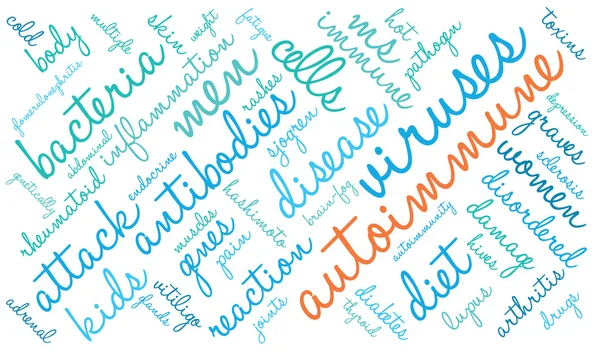 cold
body
multiple
skin
weight
fatigue
hot
ms
immune
pathogen
toxins
glomerulonephritis
bacteria
abdominal
inflammation
men
rashes
cells
viruses
autoimmune
depression
genetically
rheumatoid
endocrine
antibodies
sjogren
disease
graves
women
sclerosis
attack
muscles
genes
hashimoto
pain
brain-fog
autoimmunity
disordered
damage
hives
adrenal
kids
vitiligo
glands
reaction
joints
thyroid
diabetes
diet
lupus
arthritis
drugs